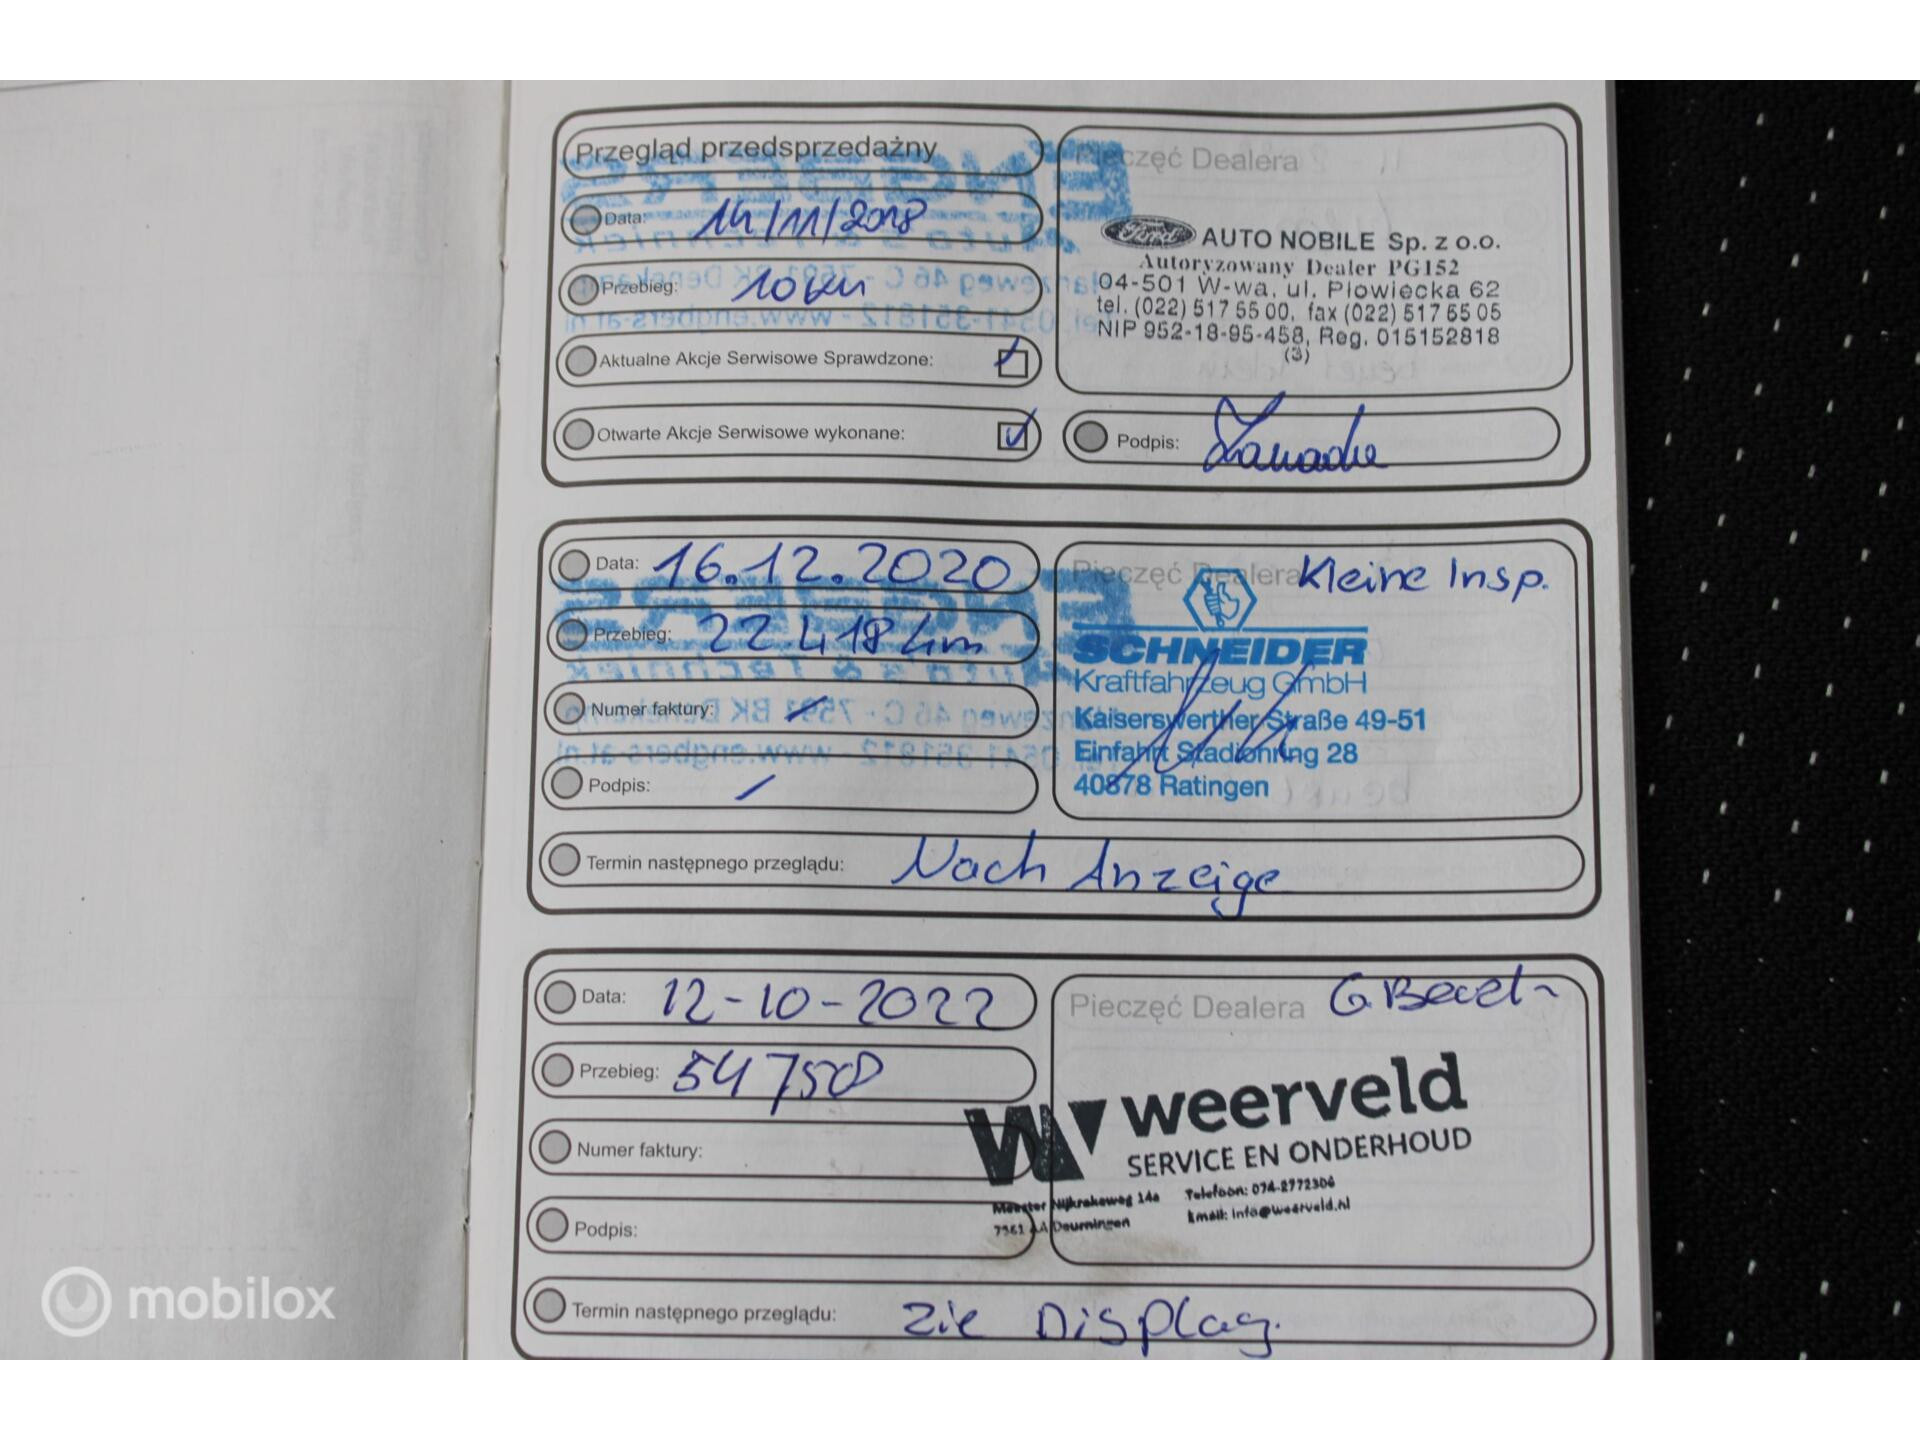 Przegląd przedsprzedażny
Data: 14/11/2018
Przebieg: 10 km
Aktualne Akcje Serwisowe Sprawdzone:
Otwarte Akcje Serwisowe wykonane:
Pieczęć Dealera
Ford AUTO NOBILE Sp. z o.o.
Autoryzowany Dealer PG152
04-501 W-wa, ul. Płowiecka 62
tel. (022) 517 55 00, fax (022) 517 55 05
NIP 952-18-95-458, Reg. 015152818
(3)
Podpis:
Data: 16.12.2020
Przebieg: 22.418 km
Numer faktury: /
Podpis: /
Pieczęć Dealera Kleine Insp.
SCHNEIDER
Kraftfahrzeug GmbH
Kaiserswerther Straße 49-51
Einfahrt Stadionring 28
40878 Ratingen
Termin następnego przeglądu: Nach Anzeige
Data: 12-10-2022
Przebieg: 54750
Numer faktury:
Podpis:
Pieczęć Dealera G. Beurt
weerveld
SERVICE EN ONDERHOUD
Meester Nijkrakeweg 14a Telefoon: 074-2772306
7561 AA Deurningen Email: info@weerveld.nl
Termin następnego przeglądu: Zie Display.
mobilox